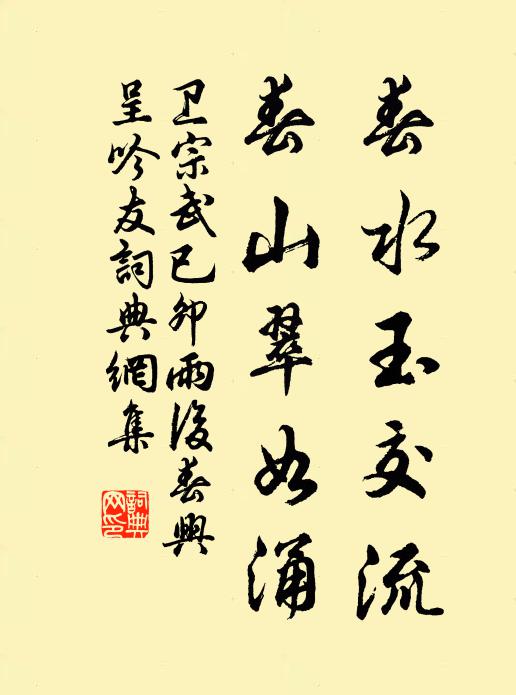 春水玉交流
春山翠如涌
卫宗武己卯雨後春興
呈吟友詞典網集
詞典网印